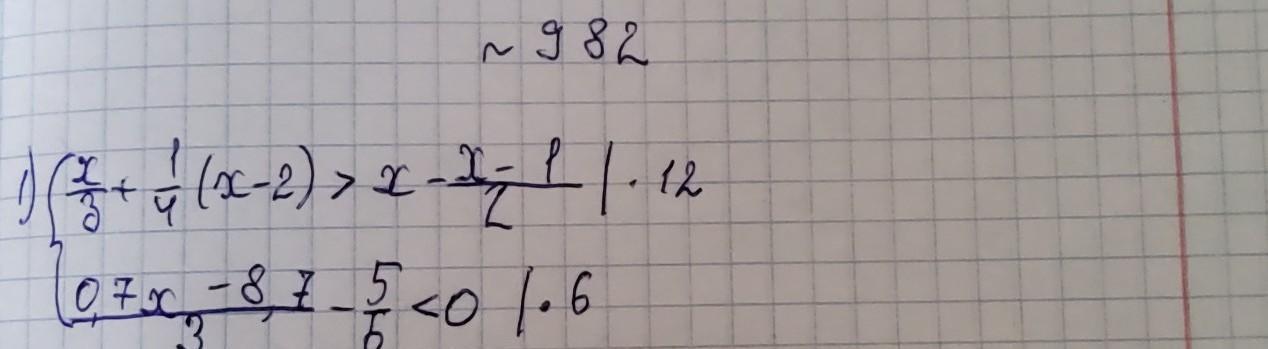 ~ 982
1) { x/3 + 1/4 (x-2) > x - x-1/2 | · 12
0,7x - 8,7/3 - 5/6 < 0 | · 6